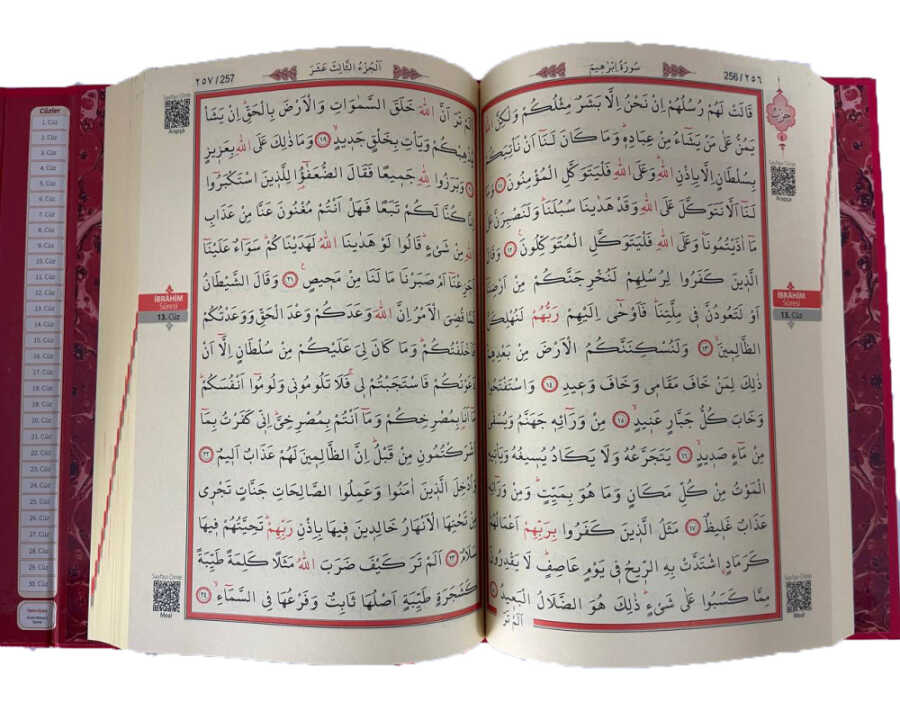 سُورَةُ اِبْرٰه۪يمَ
256 / ٢٥٦
قَالَتْ لَهُمْ رُسُلُهُمْ اِنْ نَحْنُ اِلَّا بَشَرٌ مِثْلُكُمْ وَلٰكِنَّ
يَمُنُّ عَلٰى مَنْ يَشَٓاءُ مِنْ عِبَادِه۪ۜ وَمَا كَانَ لَنَٓا اَنْ نَأْتِيَكُمْ
بِسُلْطَانٍ اِلَّا بِاِذْنِ اللّٰهِۜ وَعَلَى اللّٰهِ فَلْيَتَوَكَّلِ الْمُؤْمِنُونَ ﴿١١﴾
لَنَٓا اَلَّا نَتَوَكَّلَ عَلَى اللّٰهِ وَقَدْ هَدٰينَا سُبُلَنَاۜ وَلَنَصْبِرَنَّ عَلٰى
مَٓا اٰذَيْتُمُونَاۜ وَعَلَى اللّٰهِ فَلْيَتَوَكَّلِ الْمُتَوَكِّلُونَ۟ ﴿١٢﴾ وَقَالَ
الَّذ۪ينَ كَفَرُوا لِرُسُلِهِمْ لَنُخْرِجَنَّكُمْ مِنْ
اَوْ لَتَعُودُنَّ ف۪ي مِلَّتِنَاۜ فَاَوْحٰٓى اِلَيْهِمْ رَبُّهُمْ لَنُهْلِكَنَّ
الظَّالِم۪ينَۙ ﴿١٣﴾ وَلَنُسْكِنَنَّكُمُ الْاَرْضَ مِنْ بَعْدِهِمْۜ
ذٰلِكَ لِمَنْ خَافَ مَقَام۪ي وَخَافَ وَع۪يدِ ﴿١٤﴾ وَاسْتَفْتَحُوا
وَخَابَ كُلُّ جَبَّارٍ عَن۪يدٍۙ ﴿١٥﴾ مِنْ وَرَٓائِه۪ جَهَنَّمُ وَيُسْقٰى
مِنْ مَٓاءٍ صَد۪يدٍۙ ﴿١٦﴾ يَتَجَرَّعُهُ وَلَا يَكَادُ يُس۪يغُهُ وَيَأْت۪يهِ
الْمَوْتُ مِنْ كُلِّ مَكَانٍ وَمَا هُوَ بِمَيِّتٍۜ وَمِنْ وَرَٓائِه۪
عَذَابٌ غَل۪يظٌ ﴿١٧﴾ مَثَلُ الَّذ۪ينَ كَفَرُوا بِرَبِّهِمْ اَعْمَالُهُمْ
كَرَمَادٍۨ اشْتَدَّتْ بِهِ الرّ۪يحُ ف۪ي يَوْمٍ عَاصِفٍۜ لَا يَقْدِرُونَ
مِمَّا كَسَبُوا عَلٰى شَيْءٍۜ ذٰلِكَ هُوَ الضَّلَالُ الْبَع۪يدُ
اَلَمْ تَرَ
حزب
Arapça
İBRÂHİM
Sûresi
13. Cüz
Meal
٢٥٧ / 257
اَلْجُزْءُ الثَّالِثَ عَشَرَ
اَلَمْ تَرَ اَنَّ اللّٰهَ خَلَقَ السَّمٰوَاتِ وَالْاَرْضَ بِالْحَقِّۜ اِنْ يَشَأْ
يُذْهِبْكُمْ وَيَأْتِ بِخَلْقٍ جَد۪يدٍۙ ﴿١٩﴾ وَمَا ذٰلِكَ عَلَى اللّٰهِ بِعَز۪يزٍ
﴿٢٠﴾ وَبَرَزُوا لِلّٰهِ جَم۪يعًا فَقَالَ الضُّعَفٰٓؤُا لِلَّذ۪ينَ اسْتَكْبَرُٓوا
اِنَّا كُنَّا لَكُمْ تَبَعًا فَهَلْ اَنْتُمْ مُغْنُونَ عَنَّا مِنْ عَذَابِ
اللّٰهِ مِنْ شَيْءٍۜ قَالُوا لَوْ هَدٰينَا اللّٰهُ لَهَدَيْنَاكُمْۜ سَوَٓاءٌ عَلَيْنَٓا
اَجَزِعْنَٓا اَمْ صَبَرْنَا مَا لَنَا مِنْ مَح۪يصٍ۟ ﴿٢١﴾ وَقَالَ الشَّيْطَانُ
لَمَّا قُضِيَ الْاَمْرُ اِنَّ اللّٰهَ وَعَدَكُمْ وَعْدَ الْحَقِّ وَوَعَدْتُكُمْ
فَاَخْلَفْتُكُمْۜ وَمَا كَانَ لِيَ عَلَيْكُمْ مِنْ سُلْطَانٍ اِلَّٓا اَنْ
دَعَوْتُكُمْ فَاسْتَجَبْتُمْ ل۪يۚ فَلَا تَلُومُون۪ي وَلُومُٓوا اَنْفُسَكُمْۜ
مَٓا اَنَا۬ بِمُصْرِخِكُمْ وَمَٓا اَنْتُمْ بِمُصْرِخِيَّۜ اِنّ۪ي كَفَرْتُ بِمَٓا
اَشْرَكْتُمُونِ مِنْ قَبْلُۜ اِنَّ الظَّالِم۪ينَ لَهُمْ عَذَابٌ اَل۪يمٌ ﴿٢٢﴾
وَاُدْخِلَ الَّذ۪ينَ اٰمَنُوا وَعَمِلُوا الصَّالِحَاتِ جَنَّاتٍ تَجْر۪ي
مِنْ تَحْتِهَا الْاَنْهَارُ خَالِد۪ينَ ف۪يهَا بِاِذْنِ رَبِّهِمْۜ تَحِيَّتُهُمْ ف۪يهَا
سَلَامٌ ﴿٢٣﴾ اَلَمْ تَرَ كَيْفَ ضَرَبَ اللّٰهُ مَثَلًا كَلِمَةً طَيِّبَةً
كَشَجَرَةٍ طَيِّبَةٍ اَصْلُهَا ثَابِتٌ وَفَرْعُهَا فِي السَّمَٓاءِۙ ﴿٢٤﴾
Arapça
İBRÂHİM
Sûresi
13. Cüz
Meal
Cüzler
1. Cüz
2. Cüz
3. Cüz
4. Cüz
5. Cüz
6. Cüz
7. Cüz
8. Cüz
9. Cüz
10. Cüz
11. Cüz
12. Cüz
13. Cüz
14. Cüz
15. Cüz
16. Cüz
17. Cüz
18. Cüz
19. Cüz
20. Cüz
21. Cüz
22. Cüz
23. Cüz
24. Cüz
25. Cüz
26. Cüz
27. Cüz
28. Cüz
29. Cüz
30. Cüz